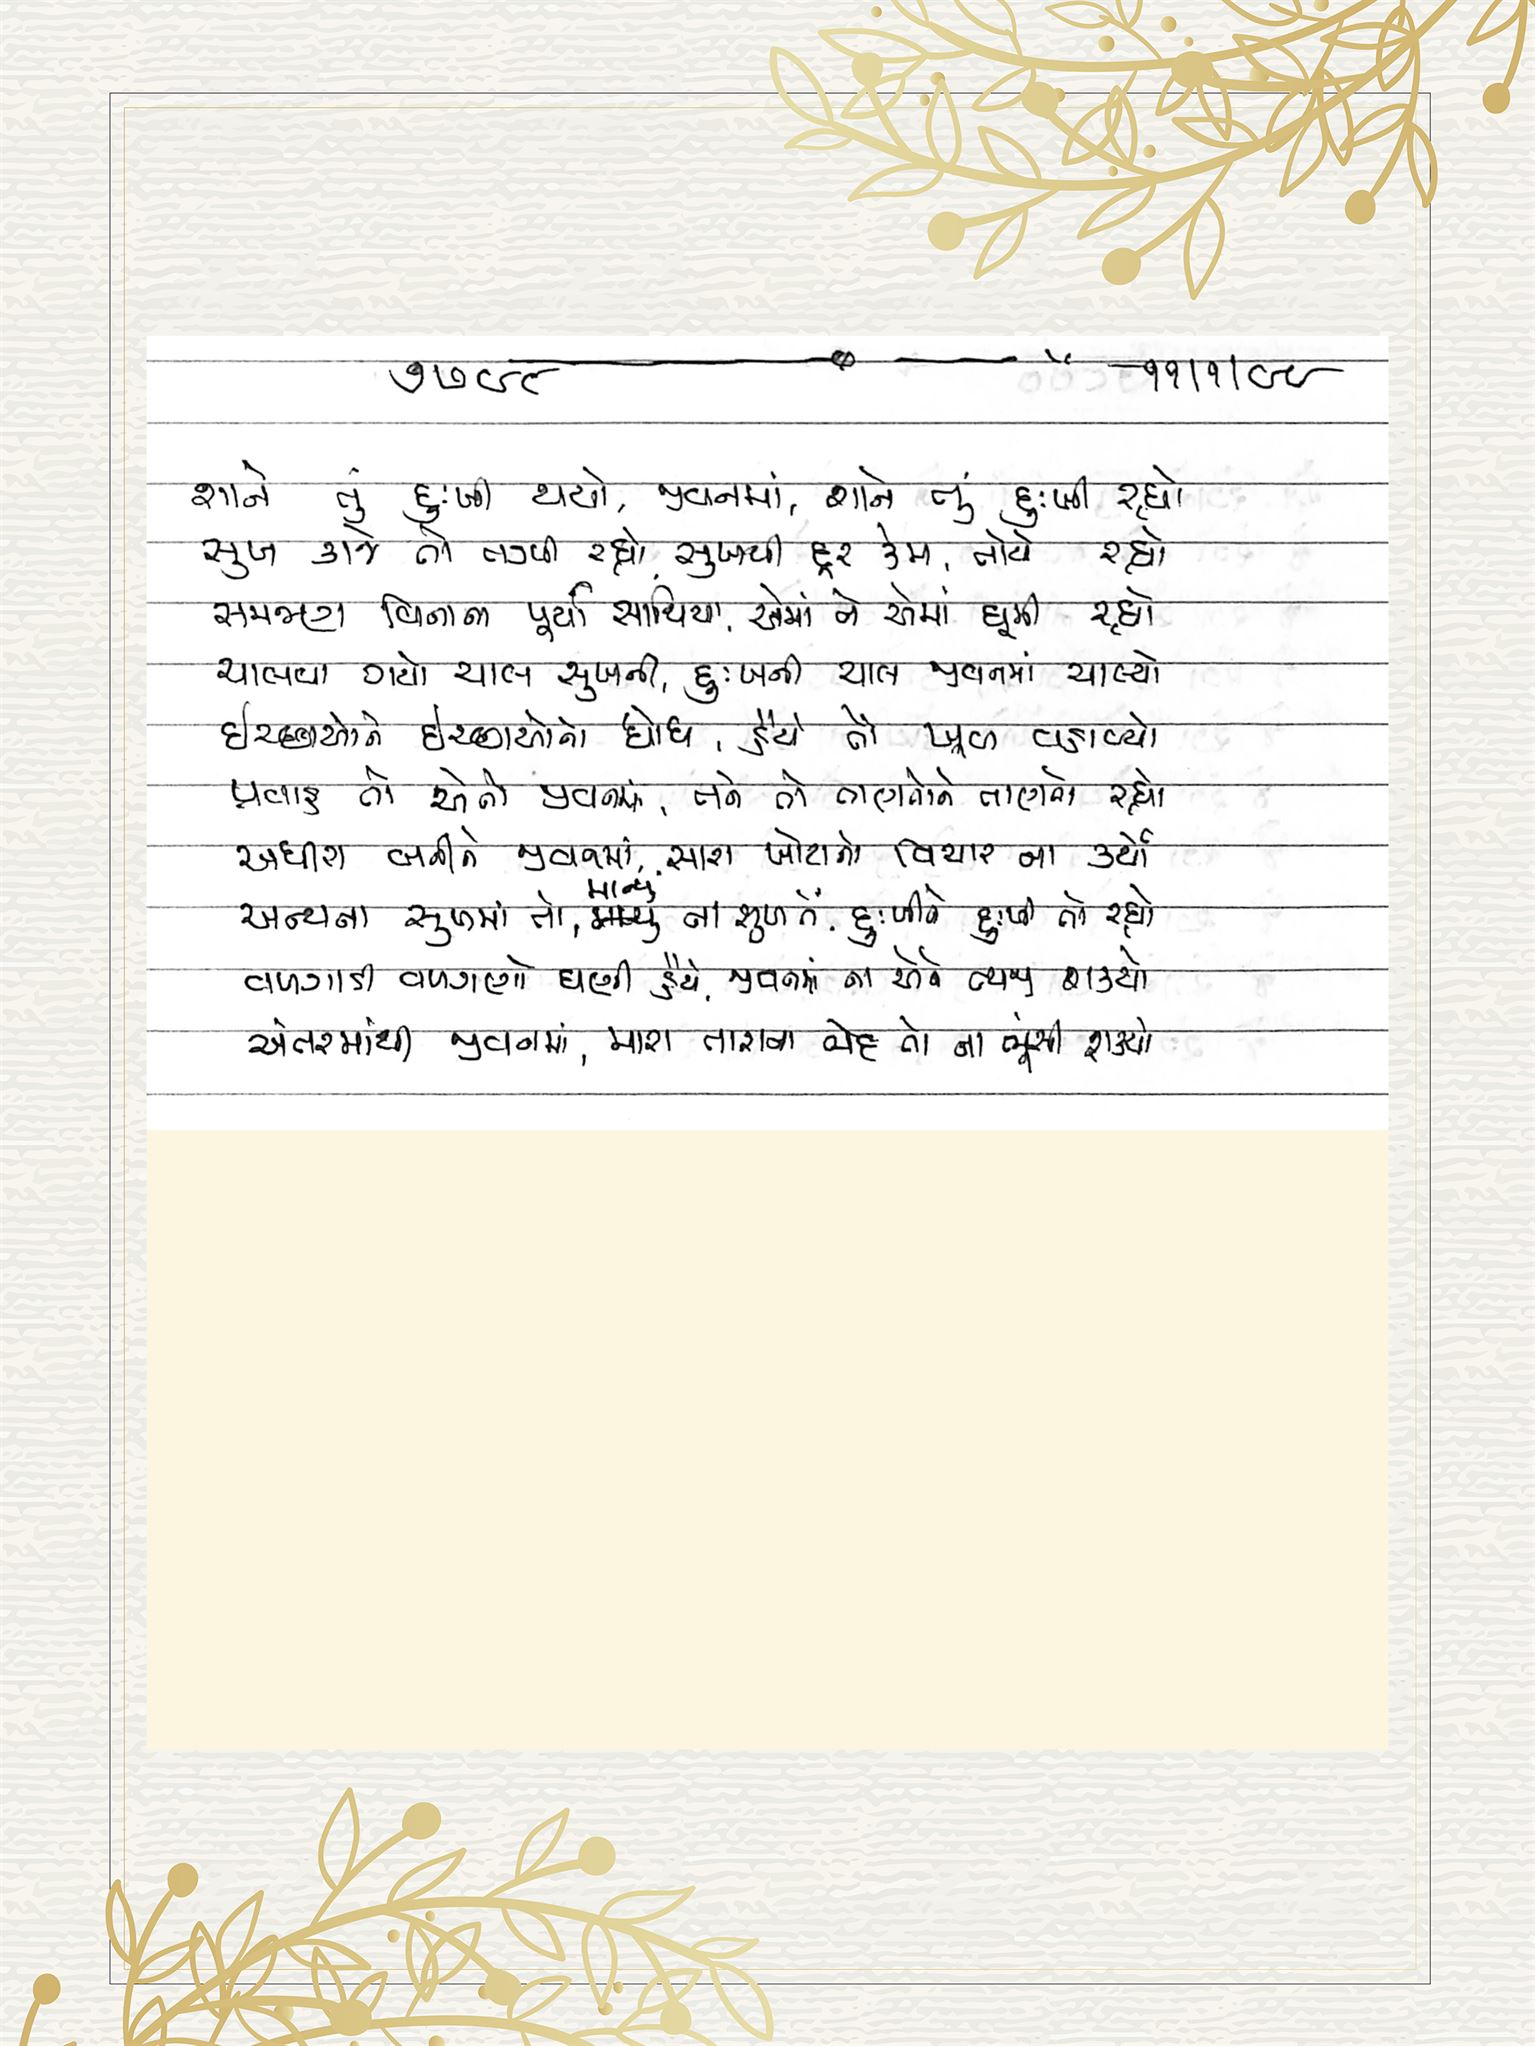 ૭૭૯૯ ૧૧/૧/૯૯
શાને તું દુઃખી થયો, જીવનમાં, શાને તું દુઃખી રહ્યો
સુખ કાજે તો તડપી રહ્યો, સુખથી દૂર કેમ, તોયે રહ્યો
સમજણ વિનાના પૂર્યા સાથિયા, એમાં ને એમાં ઘૂમી રહ્યો
ચાલવા ગયો ચાલ સુખની, દુઃખની ચાલ જીવનમાં ચાલ્યો
ઈચ્છાઓને ઈચ્છાઓનો ધોધ, હૈયે તેં ખૂબ વહાવ્યો
પ્રવાહ તો એનો જીવનમાં, તને તો તાણતોને તાણતો રહ્યો
અધીરા બનીને જીવનમાં, સારા ખોટાનો વિચાર ના કર્યો
માન્યું
અન્યના સુખમાં તો, ના સુખ તેં, દુઃખીને દુઃખી તો રહ્યો
વળગાડી વળગણો ઘણી હૈયે, જીવનમાં ના એને ત્યજી શક્યો
અંતરમાંથી જીવનમાં, મારા તારાના ભેદ તો ના ભૂંસી શક્યો